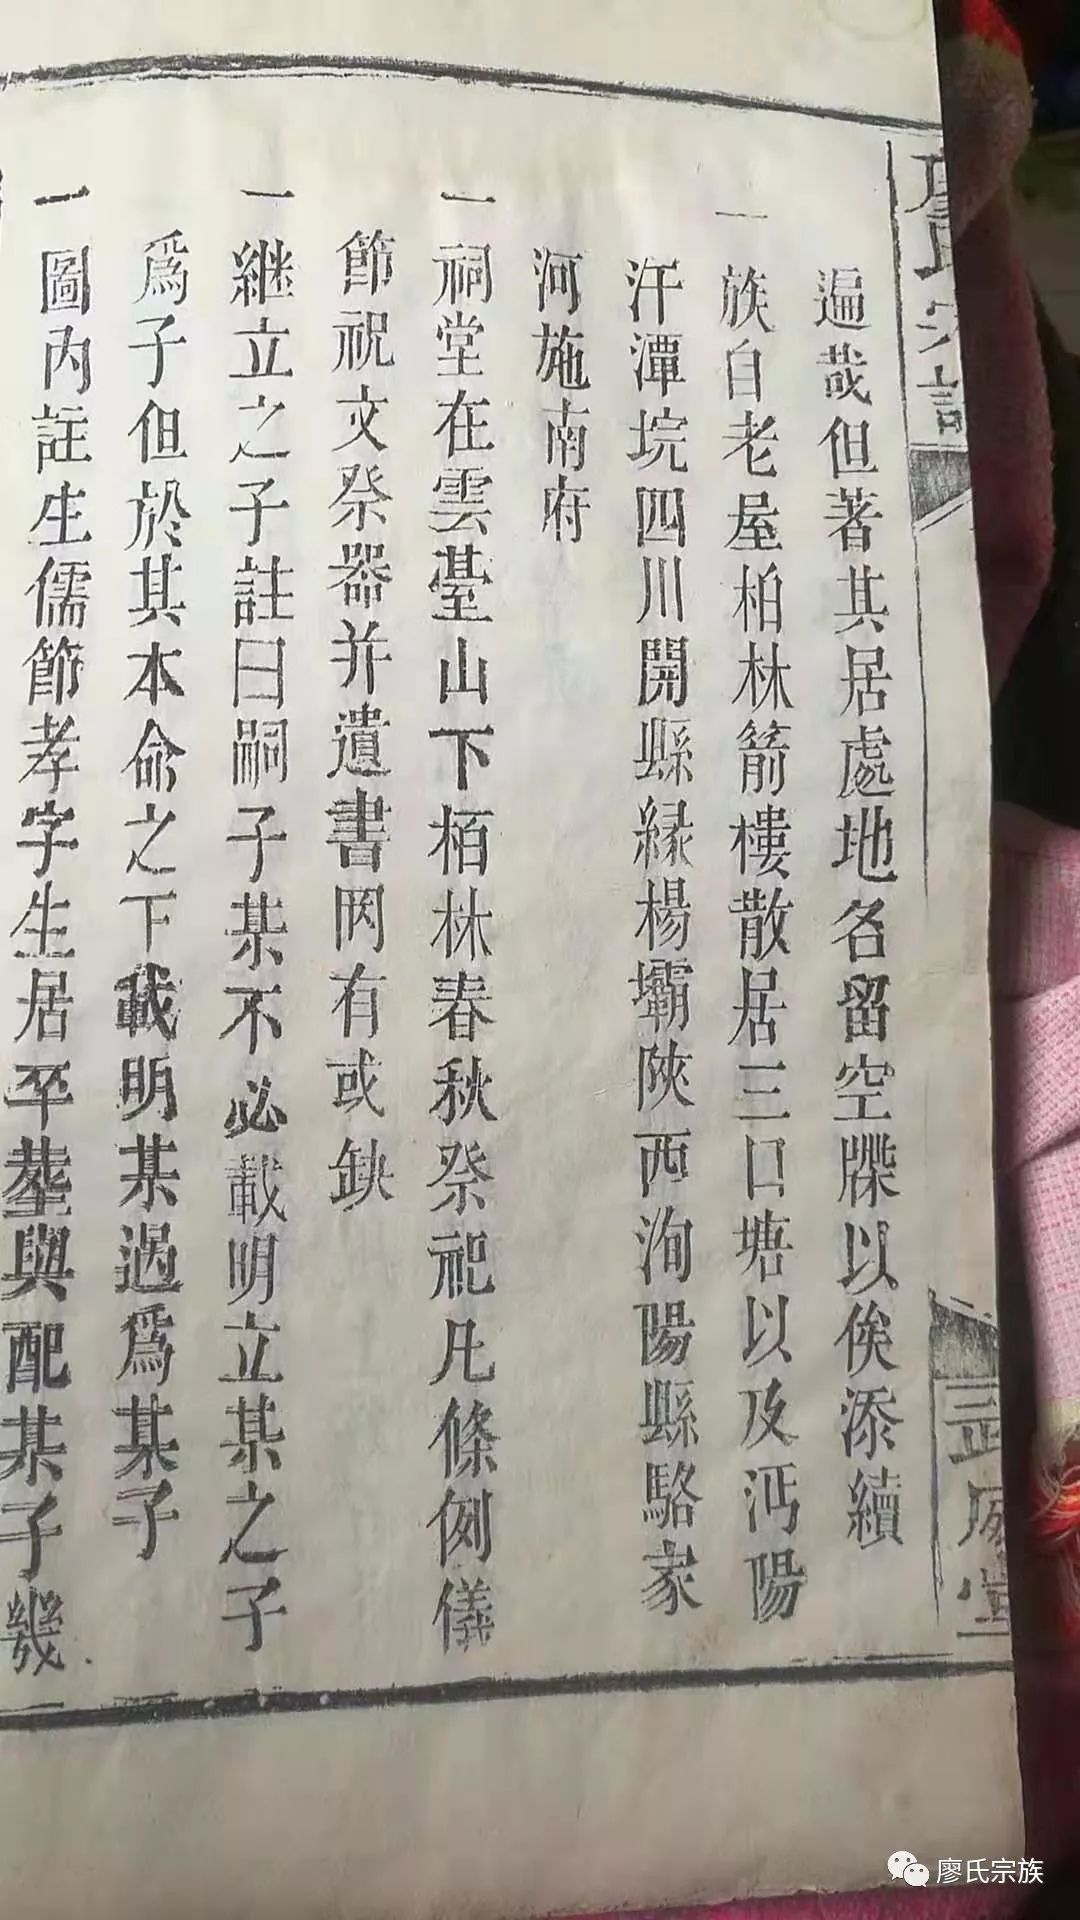 廖氏宗譜
武威堂
遍哉但著其居處地名留空牒以俟添續
一族自老屋柏林箭樓散居三口塘以及沔陽
汗潭垸四川開縣緑楊壩陜西洵陽縣駱家
河施南府
一祠堂在雲臺山下栢林春秋祭祀凡條例儀
節祝文祭器并遺書罔有或缺
一繼立之子註曰嗣子某不必載明立某之子
爲子但於其本命之下載明某過爲某子
一圖內註生儒節孝字生居卒塟與配某子幾
廖氏宗族